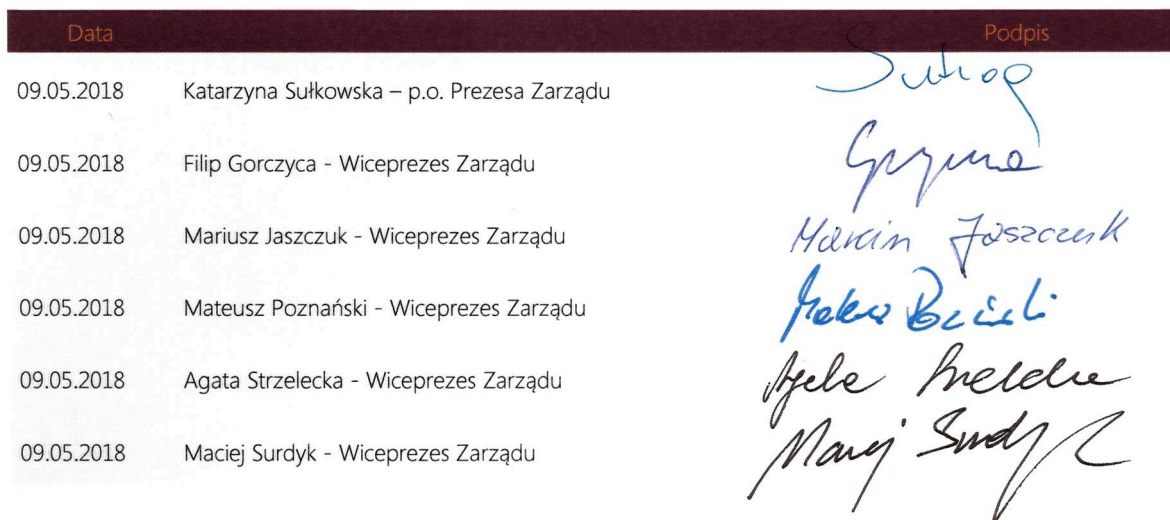 Data Podpis
09.05.2018 Katarzyna Sułkowska – p.o. Prezesa Zarządu
09.05.2018 Filip Gorczyca - Wiceprezes Zarządu
09.05.2018 Mariusz Jaszczuk - Wiceprezes Zarządu Jaszczuk
09.05.2018 Mateusz Poznański - Wiceprezes Zarządu
09.05.2018 Agata Strzelecka - Wiceprezes Zarządu
09.05.2018 Maciej Surdyk - Wiceprezes Zarządu Maciej Surdyk